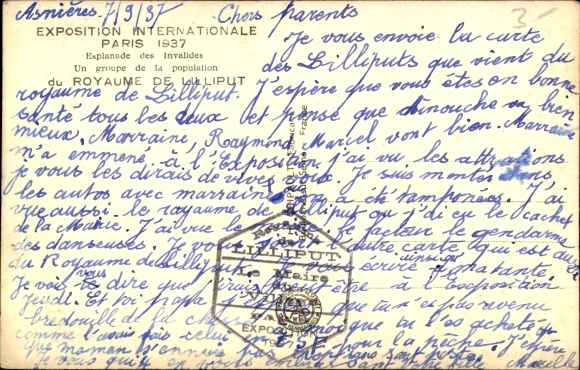 Asnières 7/9/37 Chers parents
EXPOSITION INTERNATIONALE
PARIS 1937
Esplanade des Invalides
Un groupe de la population
du ROYAUME DE LILLIPUT
Je vous envoie la carte
des Lilliputs que vient du
royaume de Lilliput. J'espère que vous êtes en bonne
santé tous les deux et pense que Minouche va bien
mieux, Marraine, Raymond, Marcel vont bien. Marraine
m'a emmené à l'Exposition j'ai vu les attractions
je vous les dirais de vives voix. Je suis montée dans
les autos avec marraine on a été tamponées. J'ai
vue aussi le royaume de Lilliput où j'di eu le cachet
de la Mairie. J'ai vue le facteur le gendarme
des danseuses. Je l'autre carte qui est aussi
du Royaume de Lilliput écrire ainsi qu'
Je vais vous dire que à l'Exposition
Jeudi. Et toi papa que tu n'es pas revenu
bredouille de la que tu l'as acheté
comme l'avais fais celui pour la pêche. J'espère
que maman s'ennuie pas
Je vous quitte en Votre fille Marcelle
Royaume
de
LILLIPUT
Le Maire
EXPOSITION
1937